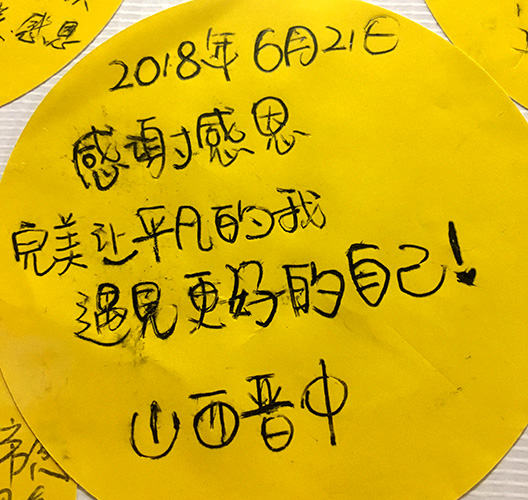 感恩
2018年6月21日
感谢感恩
完美让平凡的我
遇見更好的自己!
山西晋中